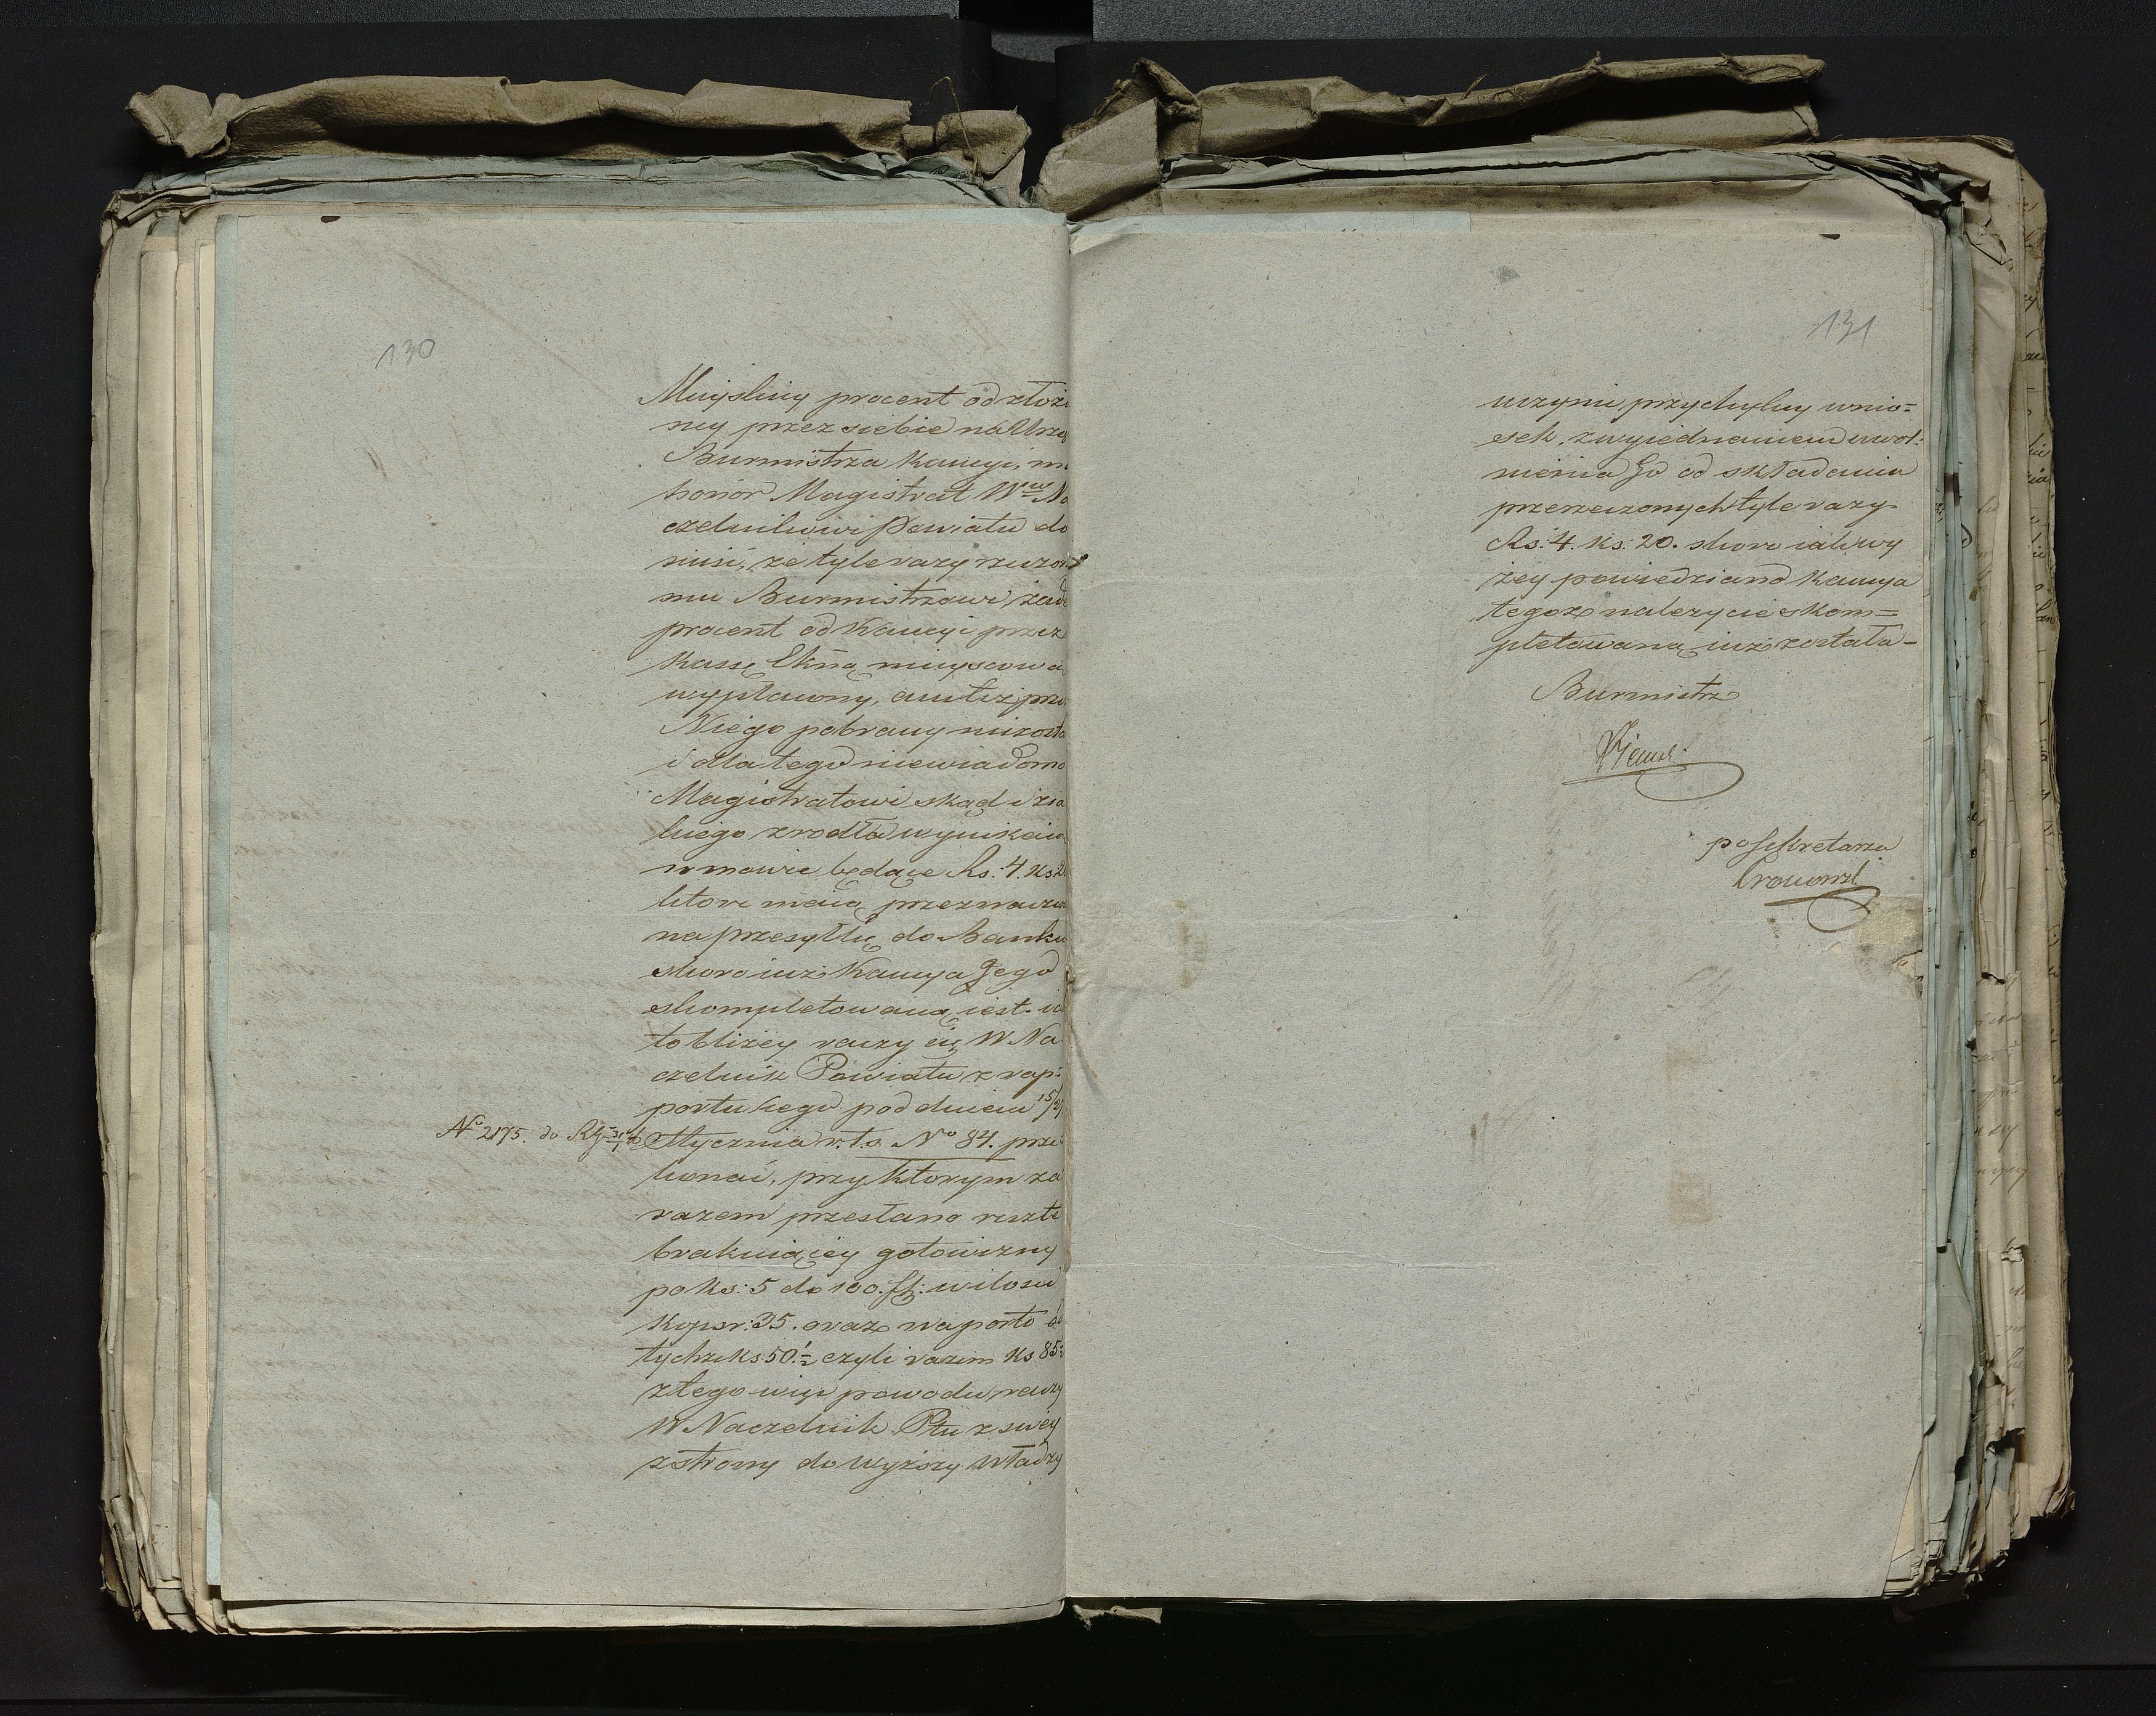 130
Mieyskiey procent od złożo
ney przez siebie na Urząd
Burmistrza Kaucyi, ma
honor Magistrat Wmu Na
czelnikowi Powiatu do
nieść, że tyle razy rzeczone
mu Burmistrzowi, żade
procent od Kaucyi przez
Kassę Ekną mieyscową
wypłacony, ani też przez
Niego pobrany nie został
i dla tego niewiadomo
Magistratowi skąd i z ia
kiego zrodła wynikaią
w mowie będące Rs: 4. ks 20
które maią przeznaczen
na przesyłkę do Banku
skoro iuż Kaucya Jego
skompletowaną iest. ia
to bliżey raczy się W Na
czelnik Powiatu z rap-
portu swego pod dniem 15/27
No 2175. do
Stycznia r. t. o No 84. prze
konać, przy którym za
razem przesłano resztę
brakuiącey gotowizny
po ks: 5 do 100. w ilości
Kop sr: 35. oraz na porto od
tychże ks 50 1/2 czyli razem ks 85 1/2
z tego więc powodu raczy
W Naczelnik Ptu z swey
strony do wyższey władzy
131
uczynić przychylny wnio=
sek, z wyiednaniem uwol=
nienia Go od składania
przerzeczonych tyle razy
Rs: 4. ks: 20. skoro iak wy
żey powiedziano Kaucya
tegoż należycie skom=
pletowaną iuż została –
Burmistrz
po Sekretarza